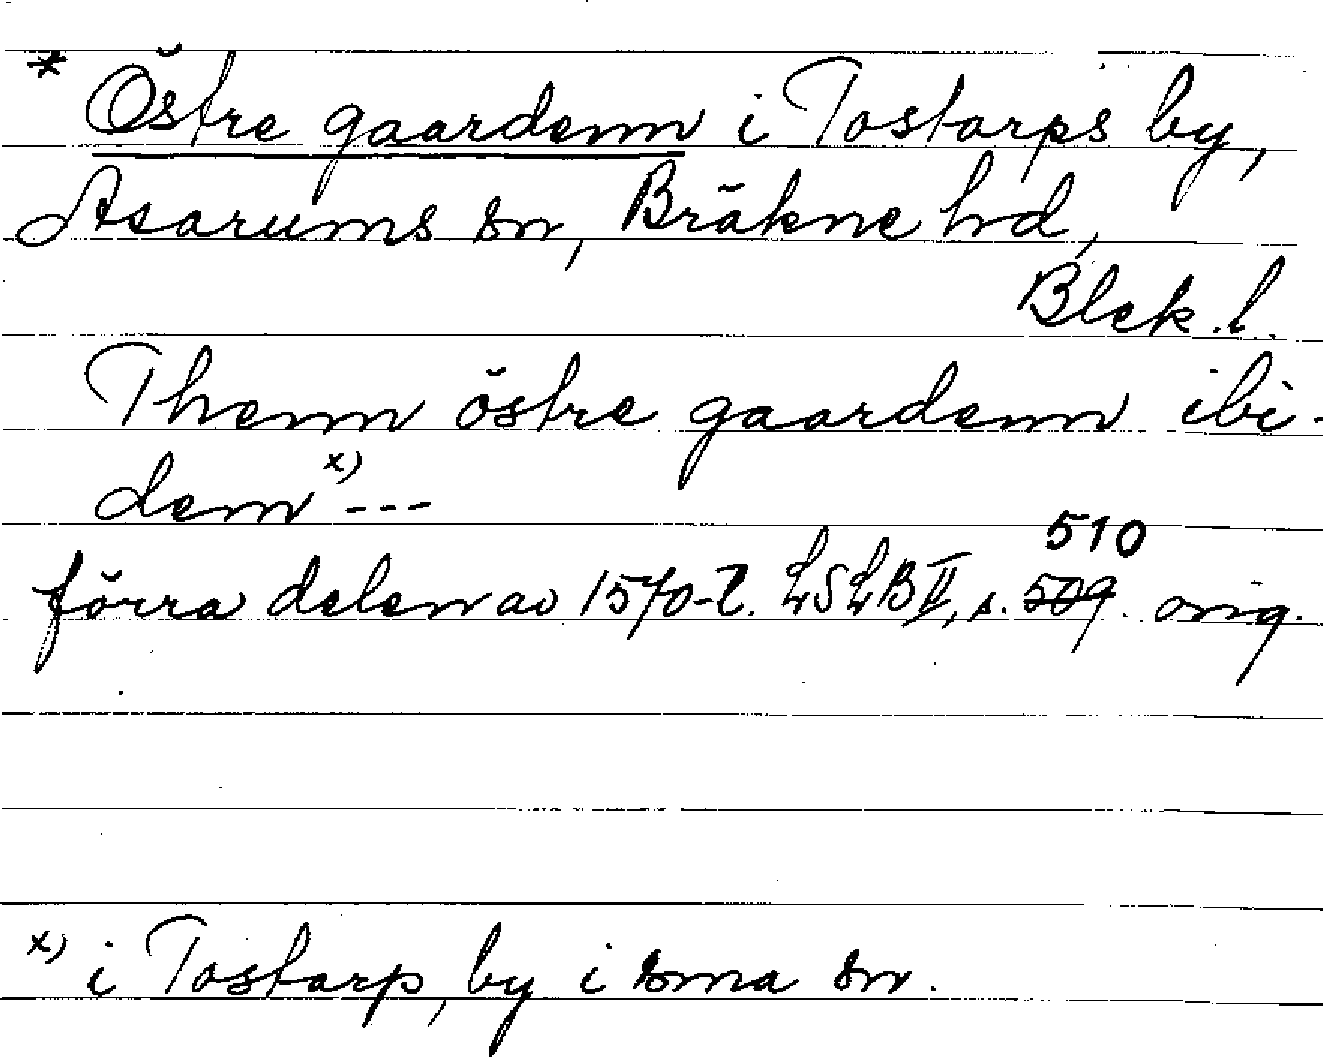 * Östre gaardenn i Tostarps by,
Asarums sn, Bräkne hd,
Blek. l.
Thenn östre gaardenn ibi-
dem x) ---
510
förra delen av 1570-t. LSLB II, s. 509. orig.
x) i Tostarp, by i sma sn.